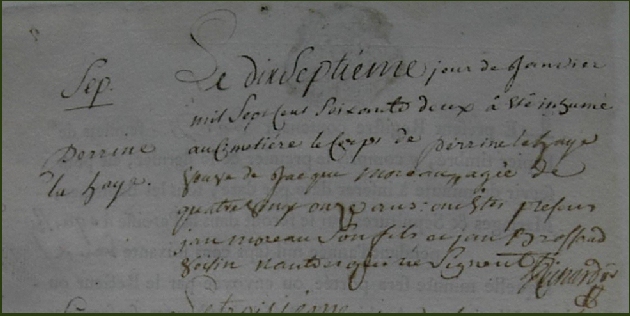 Sep.
Perrine
la haye.
Le dixseptième jour de Janvier
mil sept cent soixante deux à été inhumé
au Cimetière le Corps de perrine la haye
veuve de Jacque moreau, agée de
quatre vingt onze ans: ont étés presens
jan moreau son fils et jan Brossard
voisin n'autres qui ne signent